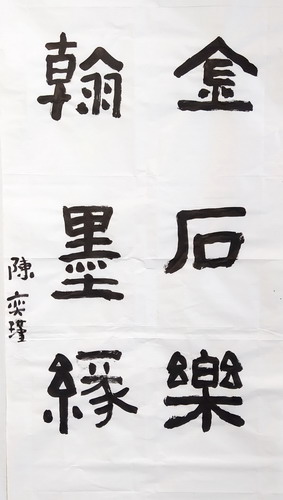 金石樂
翰墨緣
陳奕瑾